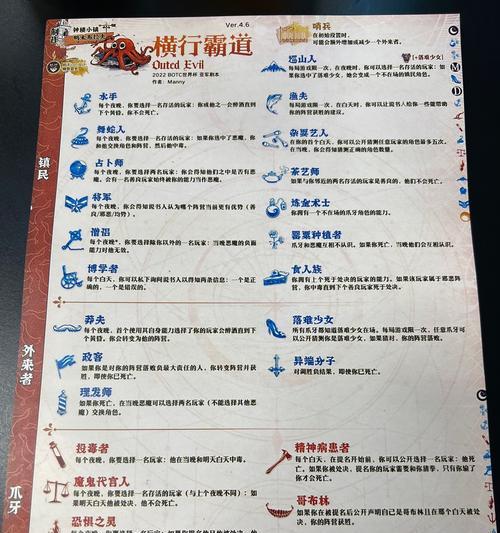 钟楼小镇
Ver.4.6
横行霸道
Outed Evil
2022 BOTC世界杯 亚军剧本
作者：Manny
哨兵
在初始设置时，
可能会额外增加或减少一个外来者。
镇民
水手
每个夜晚，你要选择一名存活的玩家：你或他之一会醉酒直到下个黄昏。你不会死亡。
舞蛇人
每个夜晚，你要选择一名存活的玩家：如果你选中了恶魔，你和他交换角色和阵营，然后他中毒。
占卜师
每个夜晚，你要选择两名玩家：你会得知他们之中是否有恶魔。会有一名善良玩家始终被你的能力当作恶魔。
将军
每个夜晚，你会得知说书人认为哪个阵营当前更有优势（善良/邪恶/均势）。
僧侣
每个夜晚*，你要选择除你以外的一名玩家：当晚恶魔的负面能力对他无效。
博学者
每个白天，你可以私下询问说书人以得知两条信息：一个是正确的，一个是错误的。
巡山人
[+落难少女]
每局游戏限一次，在夜晚时，你可以选择一名存活的玩家：如果你选中了落难少女，她会变成一个不在场的镇民角色。
渔夫
每局游戏限一次，在白天时，你可以让说书人给你一些能帮助你的阵营获胜的建议。
杂耍艺人
在你的首个白天，你可以公开猜测任意玩家的角色最多五次。在当晚，你会得知猜测正确的角色数量。
茶艺师
如果与你邻近的两名存活的玩家是善良的，他们不会死亡。
炼金术士
你拥有一个不在场的爪牙角色的能力。
罂粟种植者
爪牙和恶魔互相不认识。如果你死亡，当晚他们会互相认识。
食人族
你拥有上个死于处决的玩家的能力。如果该玩家属于邪恶阵营，你中毒直到下个善良玩家死于处决。
外来者
莽夫
每个夜晚，首个使用其自身能力选择了你的玩家会醉酒直到下个黄昏。你会转变为他的阵营。
政客
如果你是对你的阵营落败最大责任的人，你转变阵营并获胜，即使你已死亡。
理发师
如果你死亡，在当晚恶魔可以选择两名玩家（不能选择其他恶魔）交换角色。
落难少女
所有爪牙都知道落难少女在场。每局游戏限一次，任意爪牙可以公开猜测你是落难少女，如果猜对，你的阵营落败。
异端分子
对调胜负结果，即使你已死亡。
爪牙
投毒者
每个夜晚，你要选择一名玩家：他在当晚和明天白天中毒。
魔鬼代言人
每个夜晚，你要选择一名存活的玩家（与上个夜晚不同）：如果明天白天他被处决，他不会死亡。
恐惧之灵
精神病患者
每个白天，在提名开始前，你可以公开选择一名玩家：他死亡。如果你被处决，提名你的玩家需要和你猜拳，只有你输了你才会死亡。
哥布林
如果你在被提名后公开声明自己是哥布林且在那个白天被处决，你的阵营获胜。